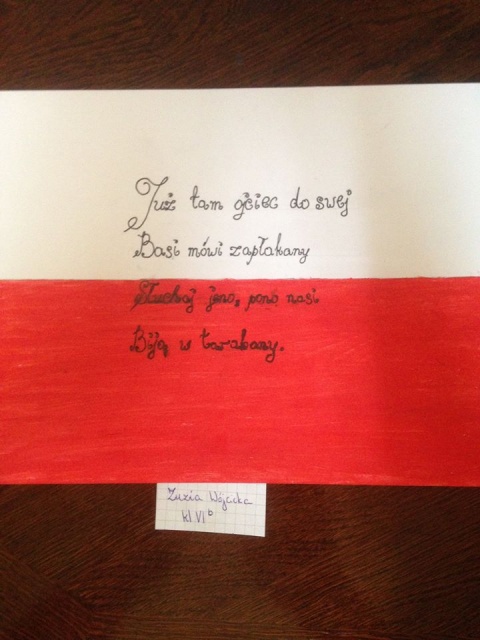 Już tam ojciec do swej
Basi mówi zapłakany
Słuchaj jeno, pono nasi
Biją w tarabany.
Zuzia Wójcicka
kl VI b